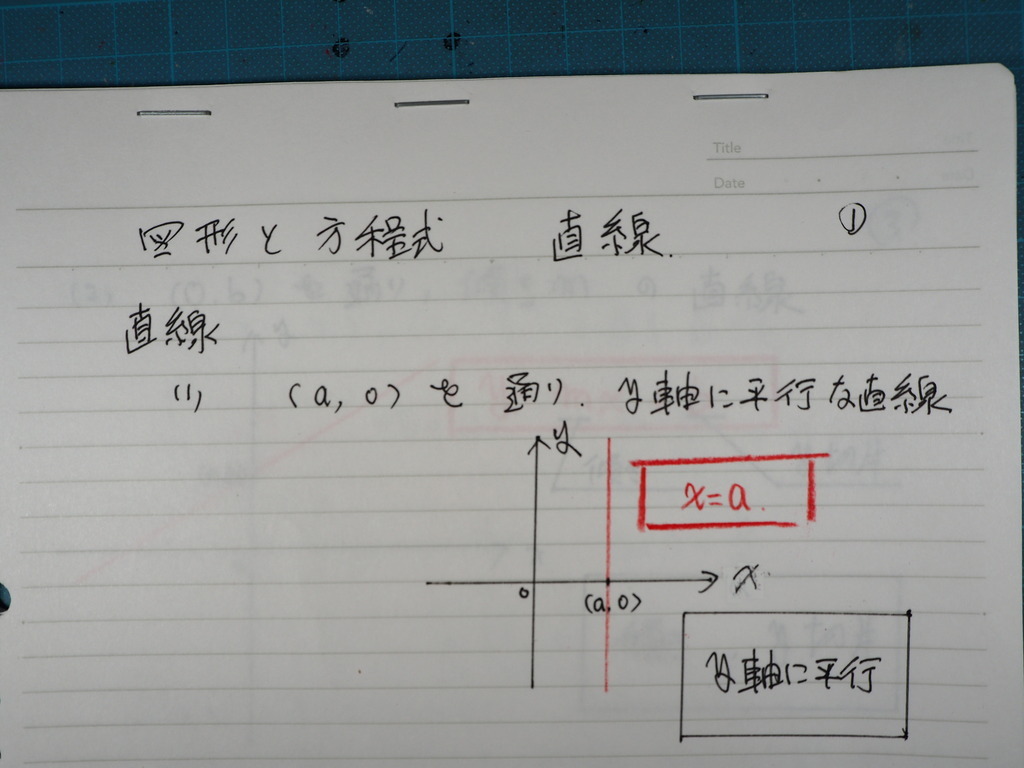 Title
Date
図形と方程式 直線. ①
直線
(1) (a, 0) を 通り. y軸に平行な直線
y
x=a.
x
0
(a, 0)
y軸に平行